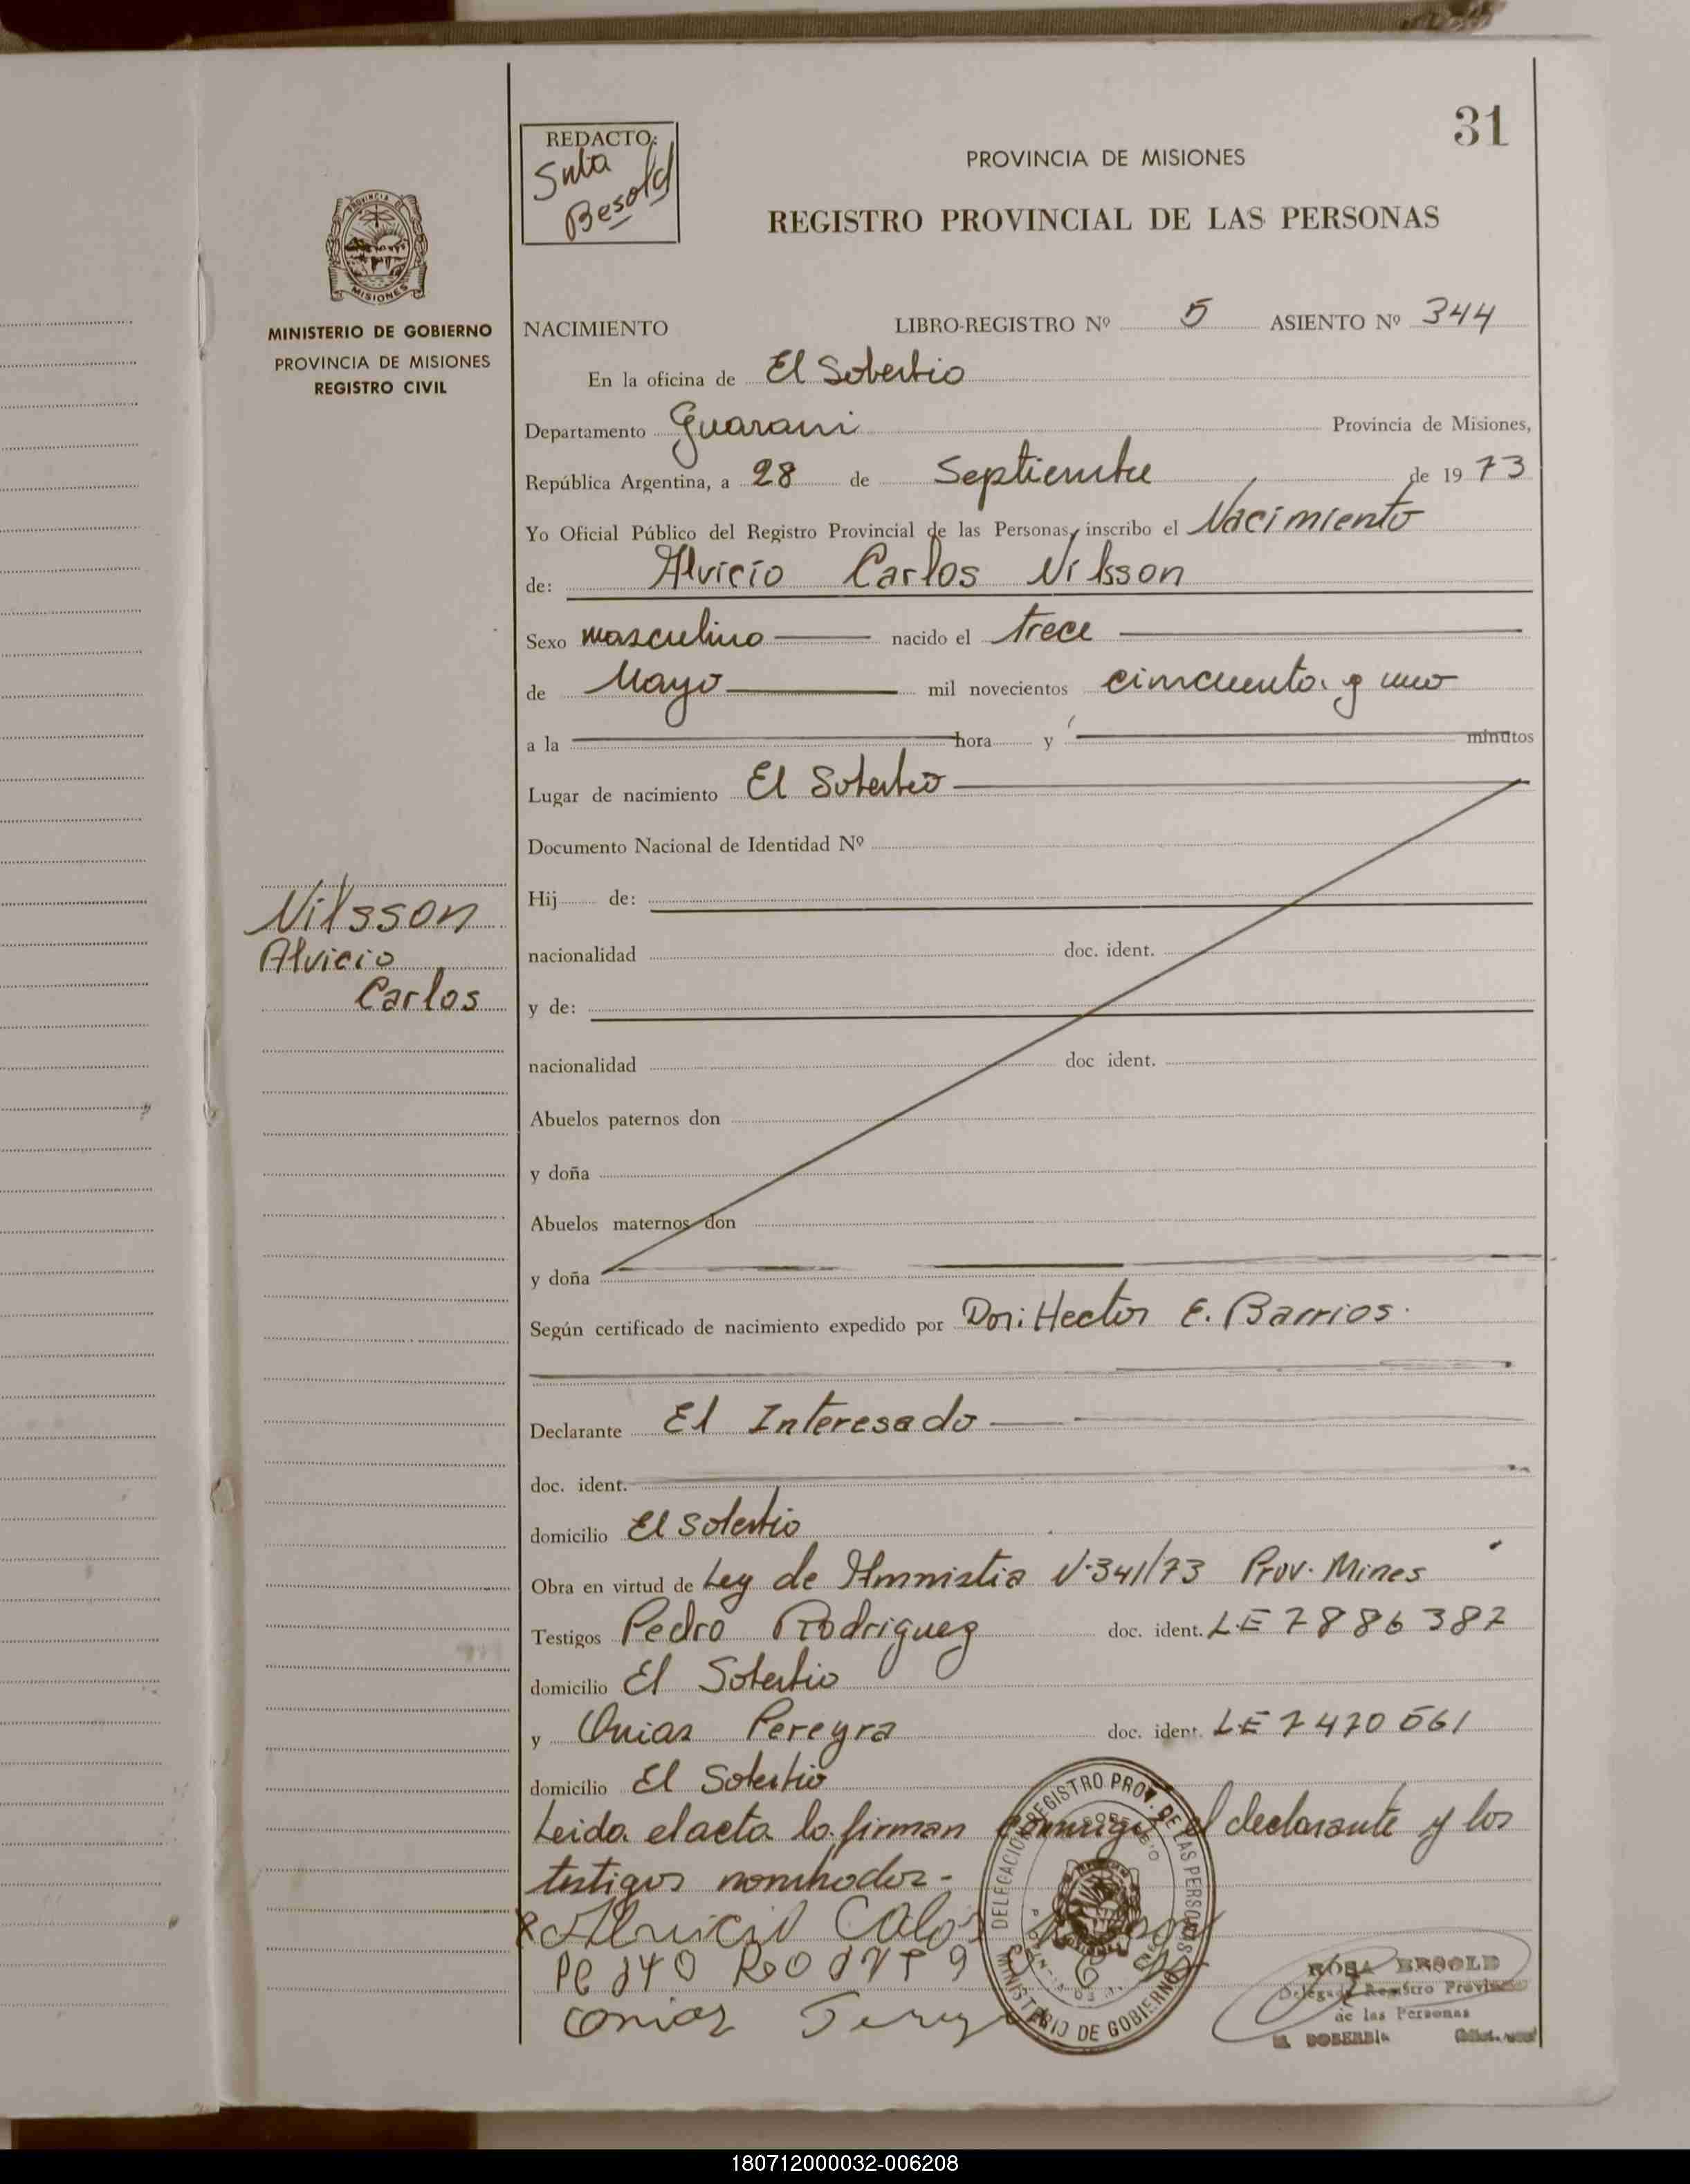 31
REDACTO:
Besold
PROVINCIA DE MISIONES
REGISTRO PROVINCIAL DE LAS PERSONAS
MISIONES
MINISTERIO DE GOBIERNO
PROVINCIA DE MISIONES
REGISTRO CIVIL
NACIMIENTO LIBRO-REGISTRO Nº 5 ASIENTO Nº 344
En la oficina de El Soberbio
Departamento Guarani Provincia de Misiones,
República Argentina, a 28 de Septiembre de 1973
Yo Oficial Público del Registro Provincial de las Personas, inscribo el Nacimiento
de: Alvicio Carlos Nilsson
Sexo masculino nacido el trece
de Mayo mil novecientos cimcuenta y uno
a la hora y minutos
Lugar de nacimiento El Soberbio
Documento Nacional de Identidad Nº
Hij de:
Nilsson
Alvicio
Carlos
nacionalidad doc. ident.
y de:
nacionalidad doc ident.
Abuelos paternos don
y doña
Abuelos maternos don
y doña
Según certificado de nacimiento expedido por Hector E. Barrios.
Declarante El Interesado
doc. ident.
domicilio El Soberbio
Obra en virtud de Ley de Amnistia Nº 341/73 Prov. Mines
Testigos Pedro Rodriguez doc. ident. L.E 7886387
domicilio El Soberbio
y Onias Pereyra doc. ident. LE 7470561
domicilio El Soberbio
Leida el acta la firman conmigo el declarante y los
testigos nombrados-
DELEGACION REGISTRO PROV. DE LAS PERSONAS
MINISTERIO DE GOBIERNO
ROSA BESOLD
Delegada Registro Provincial
de las Personas
EL SOBERBIO
180712000032-006208